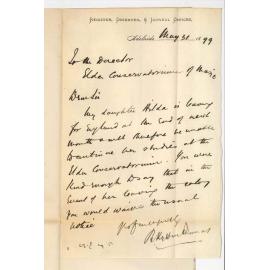 REGISTER, OBSERVER, & JOURNAL OFFICES,
Adelaide May 31 1899
To the Director
Elder Conservatorium of Music
Dear Sir
My daughter Hilda is leaving
for England at the end of next
month & will therefore be unable
to continue her studies at the
Elder Conservatorium. You were
kind enough to say that in the
event of her leaving the colony
you would waive the usual
notice
Yrs faithfully